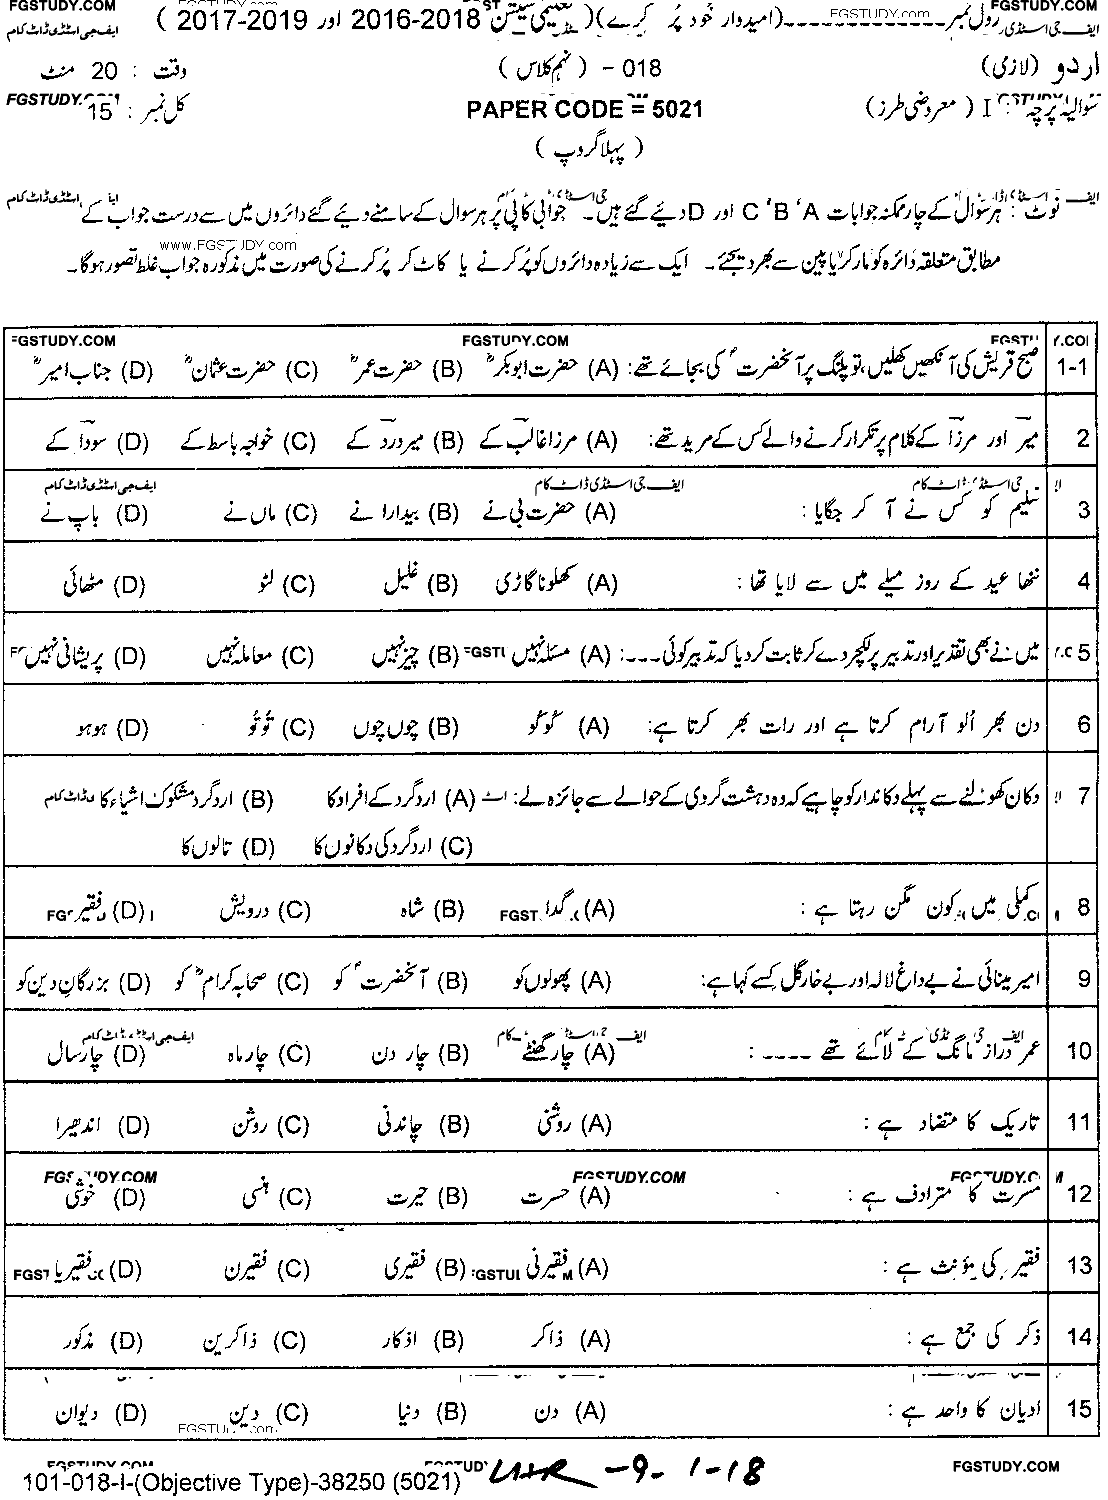 رول نمبر ---------------(امیدوار خود پُر کرے)( تعلیمی سیشن 2018-2016 اور 2019-2017 )
اردو (لازمی) 018 - ( نہم کلاس ) وقت : 20 منٹ
سوالیہ پرچہ : I ( معروضی طرز) PAPER CODE = 5021 کل نمبر : 15
( پہلا گروپ )
نوٹ : ہر سوال کے چار ممکنہ جوابات A ' B ' C اور D دیئے گئے ہیں۔ جوابی کاپی پر ہر سوال کے سامنے دیئے گئے دائروں میں سے درست جواب کے
مطابق متعلقہ دائرہ کو مارکر یا پین سے بھر دیجئے۔ ایک سے زیادہ دائروں کو پُر کرنے یا کاٹ کر پُر کرنے کی صورت میں مذکورہ جواب غلط تصور ہوگا۔
1-1 صبح قریش کی آنکھیں کھلیں، تو پلنگ پر آنحضرتؐ کی بجائے تھے: (A) حضرت ابوبکرؓ (B) حضرت عمرؓ (C) حضرت عثمانؓ (D) جناب امیرؓ
2 میر اور مرزا کے کلام پر تکرار کرنے والے کس کے مرید تھے: (A) مرزا غالب کے (B) میر درد کے (C) خواجہ باسط کے (D) سودا کے
3 سلیم کو کس نے آ کر جگایا : (A) حضرت بی نے (B) بیدارا نے (C) ماں نے (D) باپ نے
4 ننھا عید کے روز میلے میں سے لایا تھا : (A) کھلونا گاڑی (B) غلیل (C) لٹو (D) مٹھائی
5 میں نے بھی تقدیر اور تدبیر پر لیکچر دے کر ثابت کر دیا کہ تدبیر کوئی ۔۔۔: (A) مسئلہ نہیں (B) چیز نہیں (C) معاملہ نہیں (D) پریشانی نہیں
6 دن بھر اُلو آرام کرتا ہے اور رات بھر کرتا ہے: (A) کُوکُو (B) چوں چوں (C) تُوتُو (D) ہوہو
7 دکان کھولنے سے پہلے دکاندار کو چاہیے کہ وہ دہشت گردی کے حوالے سے جائزہ لے: (A) اردگرد کے افراد کا (B) اردگرد مشکوک اشیاء کا
(C) اردگرد کی دکانوں کا (D) تالوں کا
8 کملی میں کون مگن رہتا ہے : (A) گدا (B) شاہ (C) درویش (D) فقیر
9 امیر مینائی نے بے داغ لالہ اور بے خار گل کسے کہا ہے: (A) پھولوں کو (B) آنحضرتؐ کو (C) صحابہ کرامؓ کو (D) بزرگانِ دین کو
10 عمر دراز مانگ کے لائے تھے ۔۔۔۔ : (A) چار گھنٹے (B) چار دن (C) چار ماہ (D) چار سال
11 تاریک کا متضاد ہے : (A) روشنی (B) چاندنی (C) روشن (D) اندھیرا
12 مسرت کا مترادف ہے : (A) حسرت (B) حیرت (C) ہنسی (D) خوشی
13 فقیر کی مؤنث ہے : (A) فقیرنی (B) فقیری (C) فقیرن (D) فقیریا
14 ذکر کی جمع ہے : (A) ذاکر (B) اذکار (C) ذاکرین (D) مذکور
15 ادیان کا واحد ہے : (A) دن (B) دنیا (C) دین (D) دیوان
101-018-I-(Objective Type)-38250 (5021)
FGSTUDY.COM